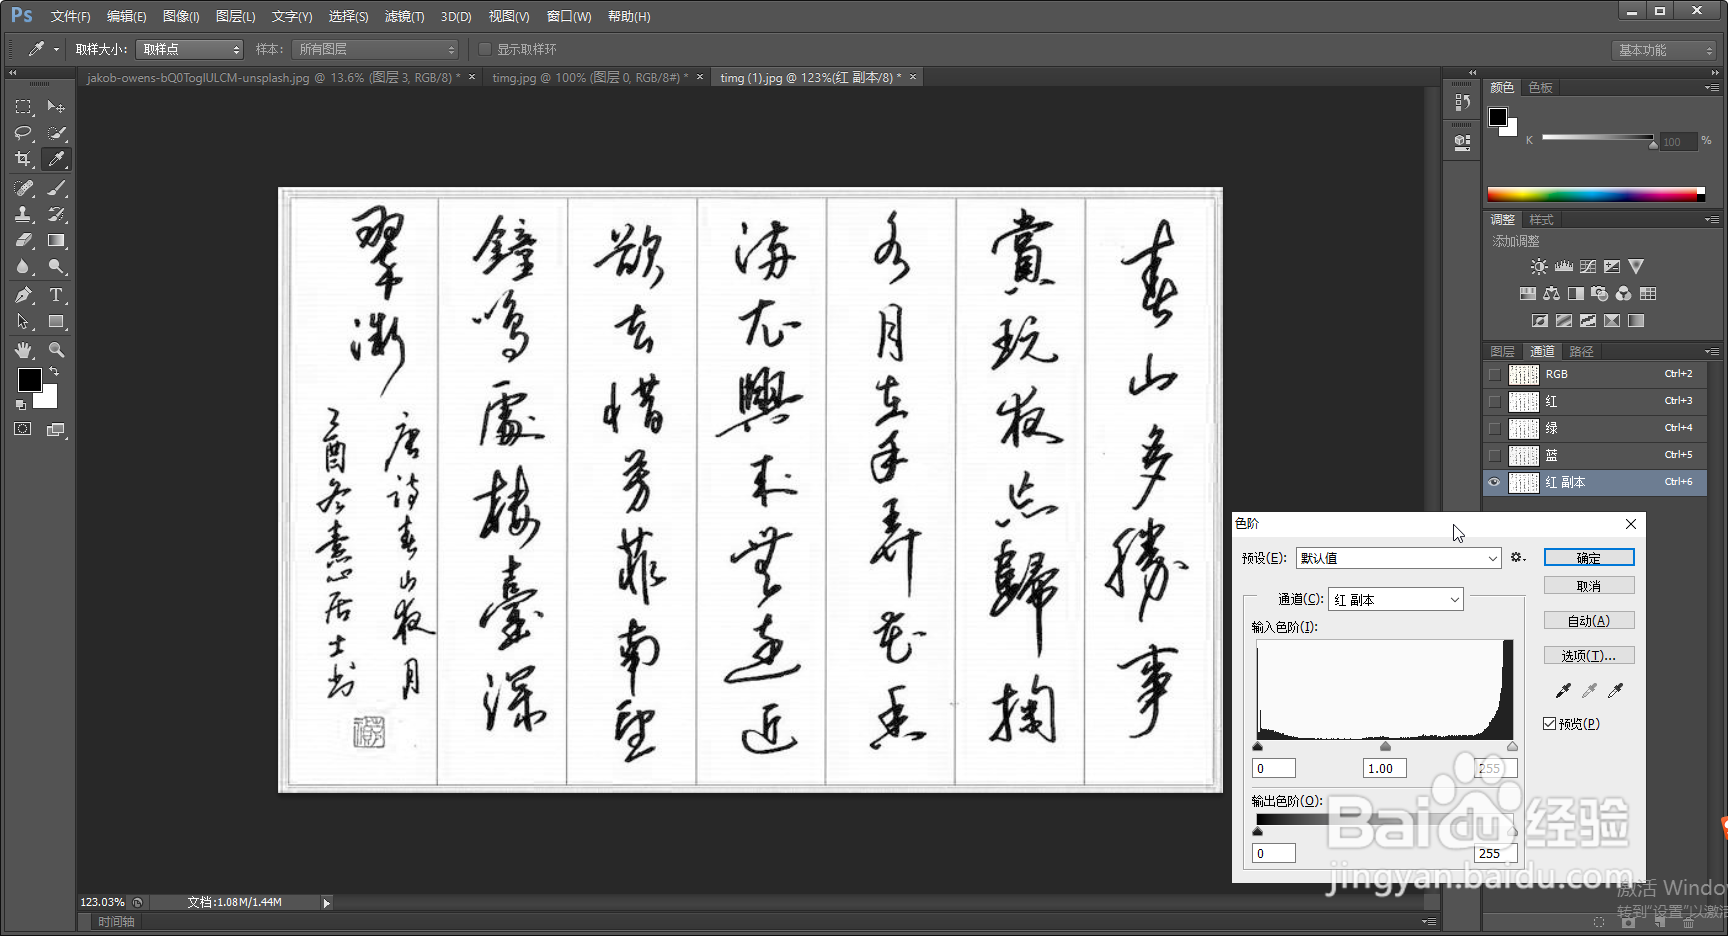 Ps 文件(F) 编辑(E) 图像(I) 图层(L) 文字(Y) 选择(S) 滤镜(T) 3D(D) 视图(V) 窗口(W) 帮助(H)
取样大小: 取样点 样本: 所有图层 显示取样环 基本功能
jakob-owens-bQ0TogIULCM-unsplash.jpg @ 13.6% (图层 3, RGB/8) * × timg.jpg @ 100% (图层 0, RGB/8#) * × timg (1).jpg @ 123%(红 副本/8) * ×
春山多勝事
賞玩夜忘歸掬
水月在手弄花香
滿衣興來無遠近
欲去惜芳菲南望
鐘鳴處樓臺深
翠微
唐诗春山夜月
乙酉冬素心居士书
颜色 色板
K 100 %
调整 样式
添加调整
图层 通道 路径
RGB Ctrl+2
红 Ctrl+3
绿 Ctrl+4
蓝 Ctrl+5
红 副本 Ctrl+6
色阶
预设(E): 默认值 确定
取消
通道(C): 红 副本
自动(A)
输入色阶(I):
选项(T)...
预览(P)
0 1.00 255
输出色阶(O):
0 255
Baidu经验
jingyan.baidu.com
激活 Windo
转到"设置"以激
123.03% 文档:1.08M/1.44M
时间轴